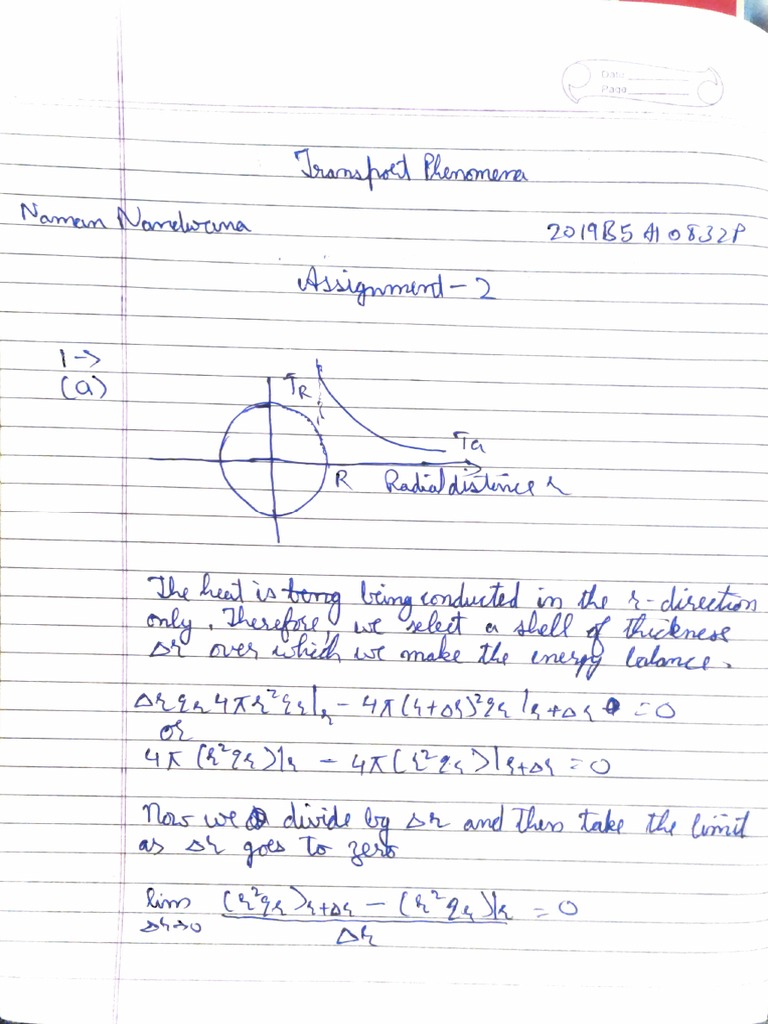 Date
Page
Transport Phenomena
Naman Nandwana 2019B5A10832P
Assignment - 2
1 →
(a)
TR
Ta
R Radial distance r
The heat is being being conducted in the r-direction
only. Therefore, we select a shell of thickness
Δr over which we make the energy balance.
Δr qr 4πr²qr|r - 4π(r+Δr)²qr|r+Δr = 0
or
4π (r²qr)|r - 4π(r²qr)|r+Δr = 0
Now we divide by Δr and then take the limit
as Δr goes to zero
lim (r²qr)r+Δr - (r²qr)|r = 0
Δr→0 Δr